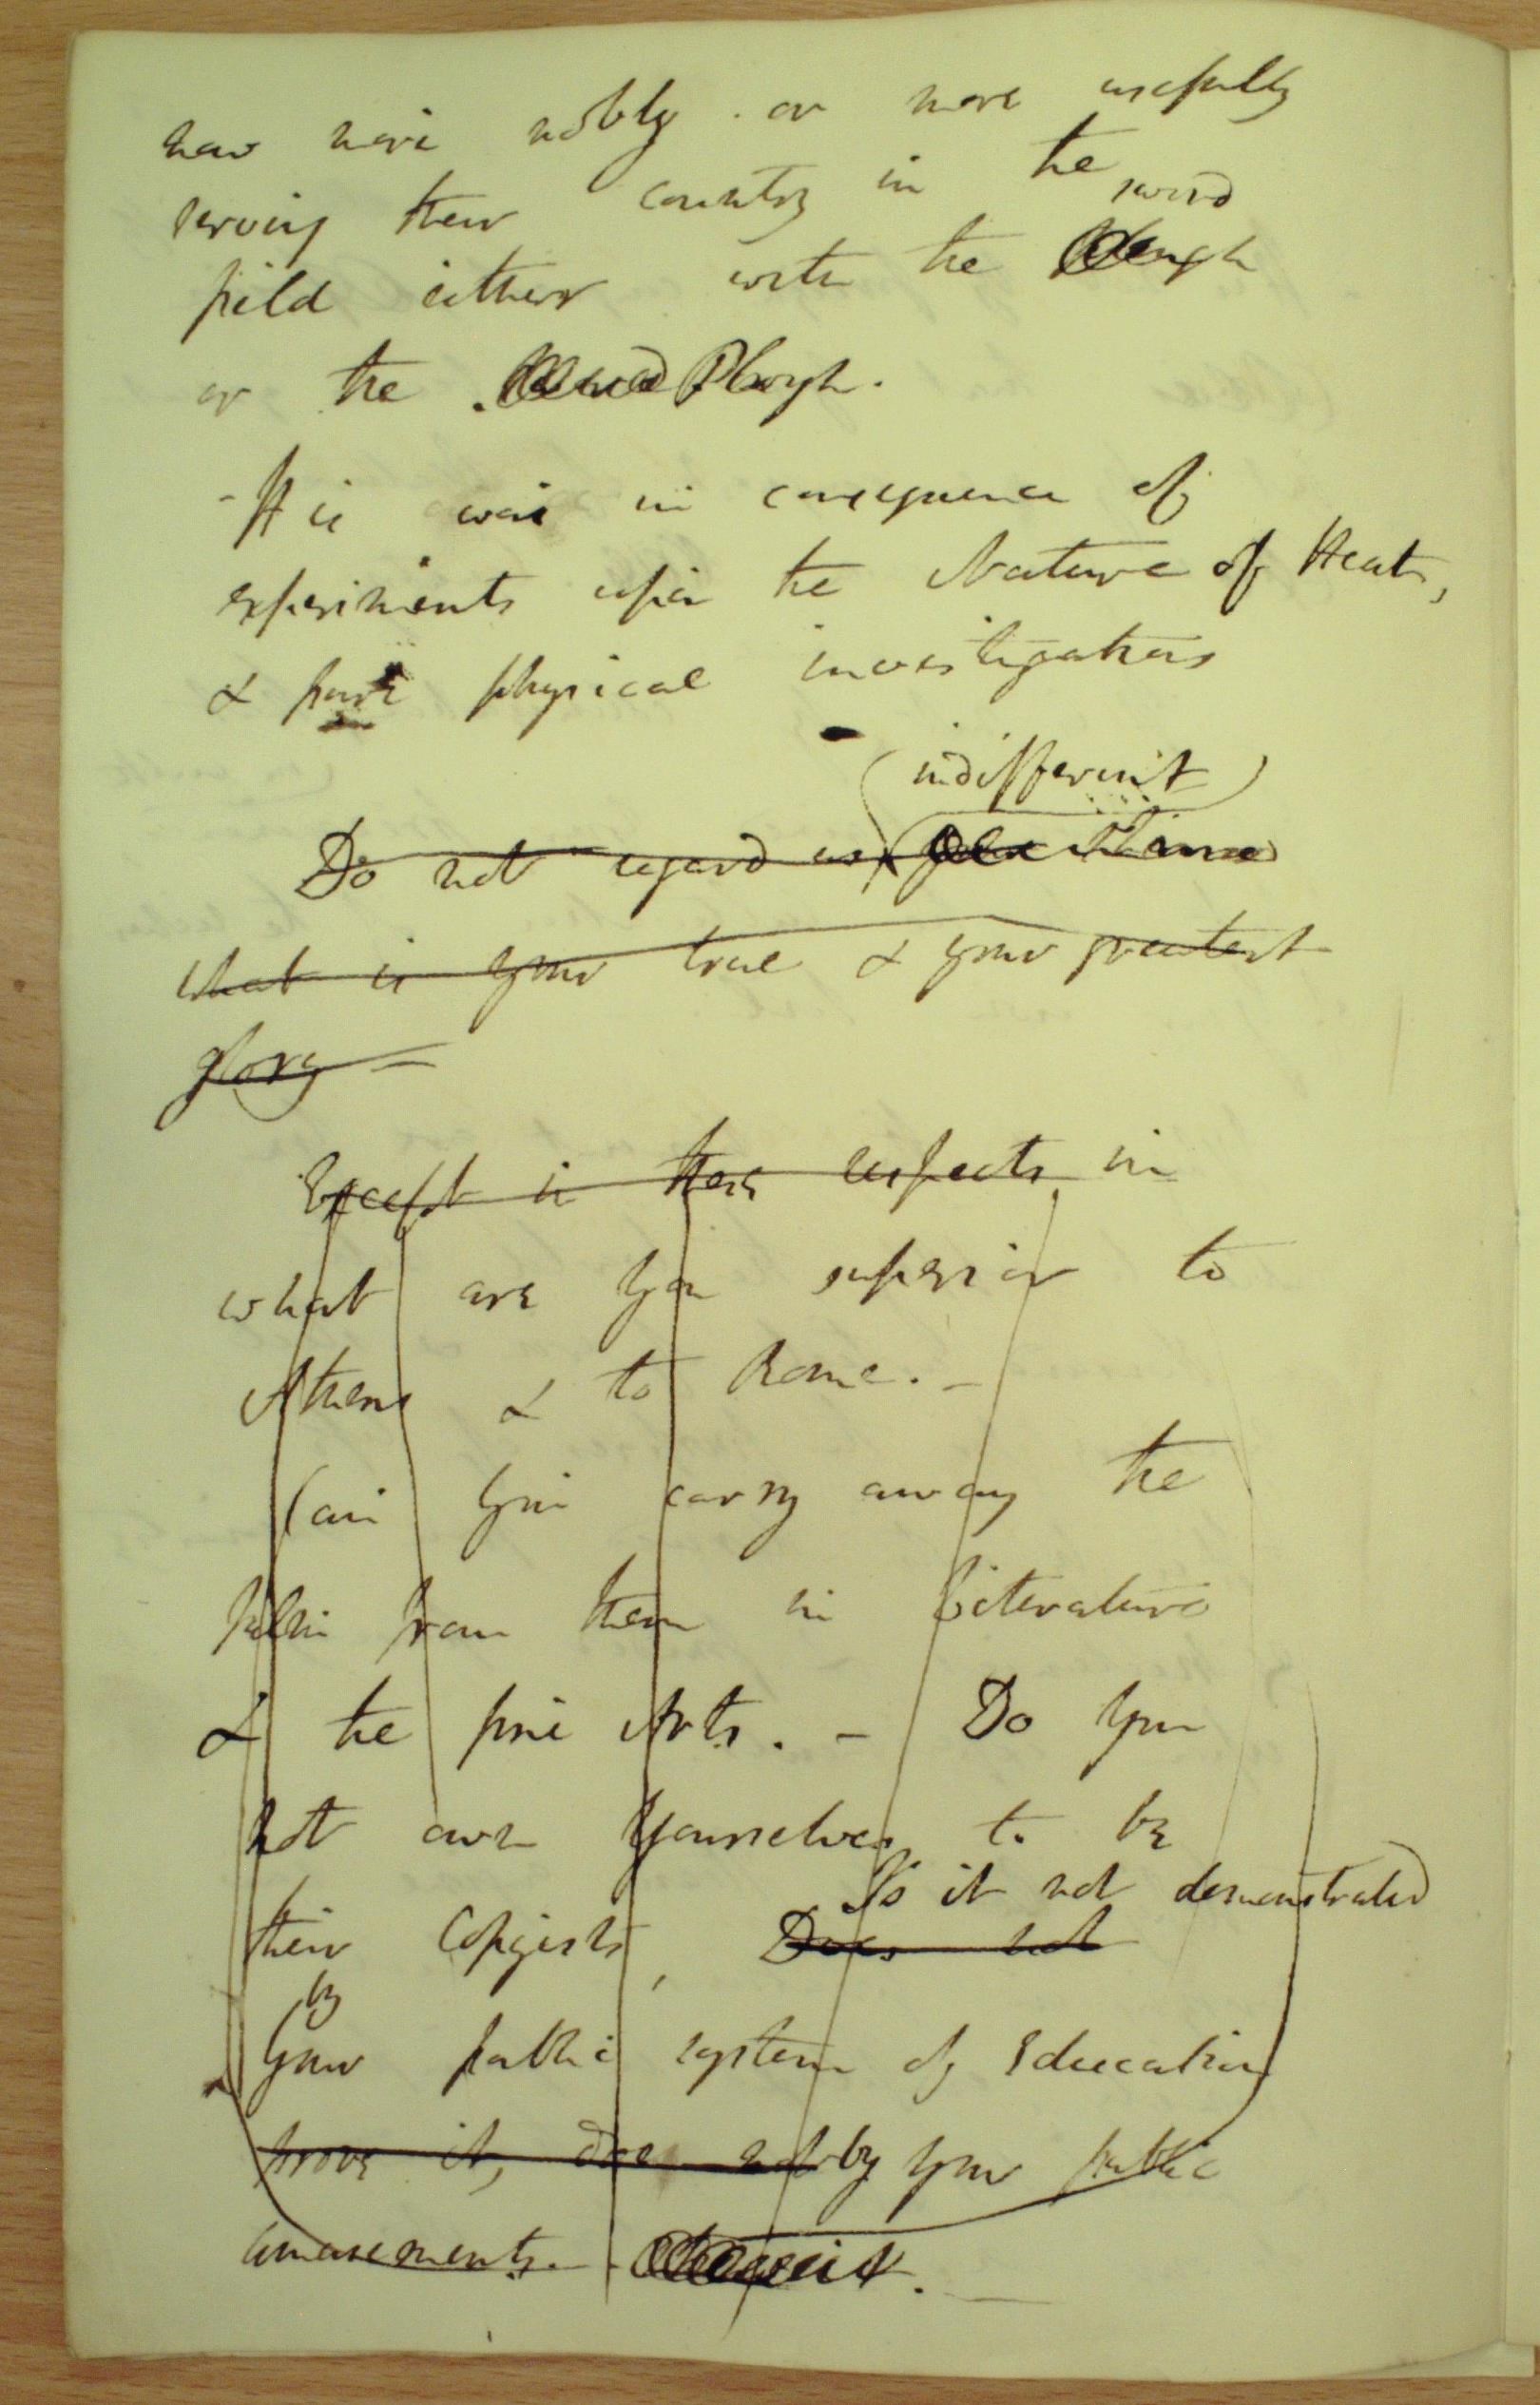 now more nobly or more usefully
serving their country in the
sword
field either with the Plough
or the sword Plough.
- It is was in consequence of
experiments upon the Nature of Heat,
& pure physical investigations
(indifferent)
Do not regard as
what is your true & your greatest
glory -
Except in these respects in
what are you superior to
Athens & to Rome. -
Can you carry away the
palm from them in Literature
& the fine Arts. - Do you
not own yourselves to be
Is it not demonstrated
their Copyists, Does not
by
your public system of Education
prove it, does not by your public
amusements.